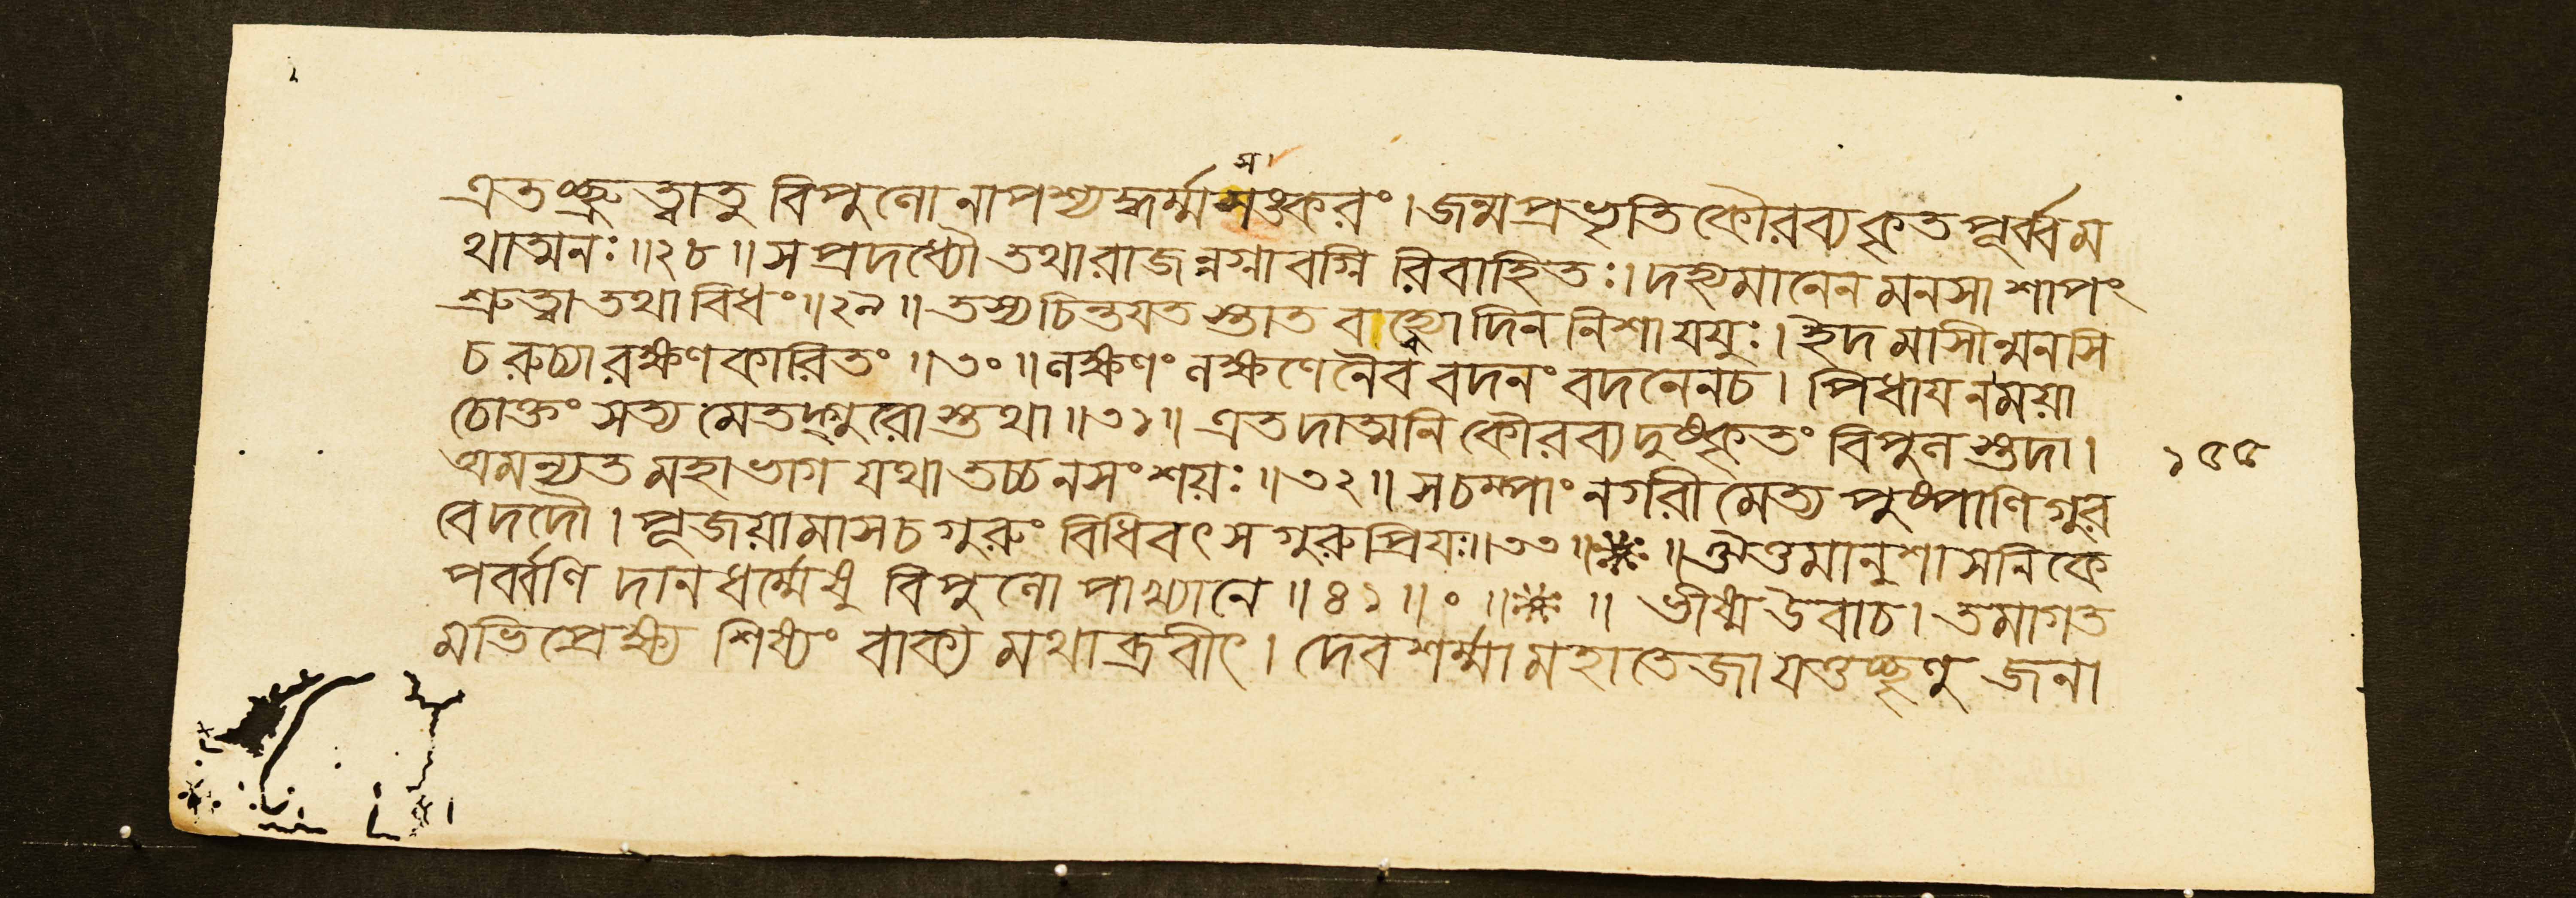 স
এতচ্ছ্রুত্বাতু বিপুলো নাপশ্যদ্ধর্ম্মসঙ্করং। জন্মপ্রভৃতি কৌরব্য কৃতপূর্ব্বম
থাত্মনঃ॥২৮॥ স প্রদধ্যৌ তথা রাজন্নগ্নাবগ্নি রিবাহিতঃ। দহ্যমানেন মনসা শাপং
শ্রুত্বা তথা বিধং॥২৯॥ তস্য চিন্তযত স্তাত বহ্ব্যো দিন নিশা যযুঃ। ইদ মাসীন্মনসি
চ রুচ্যা রক্ষণকারিতং॥৩০॥ লক্ষণং লক্ষণেনৈব বদনং বদনেনচ। পিধায নময়া
চোক্তং সত্য মেতদ্গুরোস্তথা॥৩১॥ এতদাত্মনি কৌরব্য দুষ্কৃতং বিপুল স্তদা।
অমন্যত মহাভাগ যথা তচ্চ নসংশয়ঃ॥৩২॥ স চম্পাং নগরী মেত্য পুষ্পাণি গুর
বে দদৌ। পূজয়ামাস চ গুরুং বিধিবৎ স গুরুপ্রিযঃ॥৩৩॥ ॥ ঔত্তমানুশাসনিকে
পর্ব্বণি দানধর্ম্মেষু বিপুলো পাখ্যানে॥৪১॥০॥ ॥ ভীষ্ম উবাচ। তমাগত
মভিপ্রেক্ষ্য শিষ্যং বাক্য মথাব্রবীৎ। দেবশর্ম্মা মহাতেজা যত্তচ্ছৃণু জনা
১৫৫